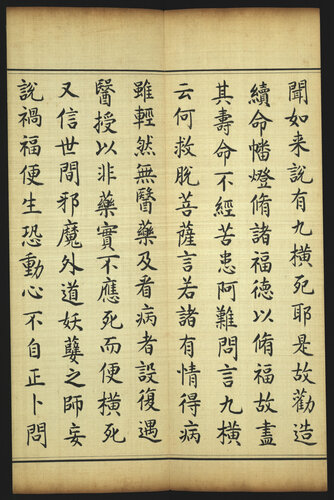 聞如来說有九橫死耶是故勸造
續命幡燈脩諸福德以脩福故盡
其壽命不經苦患阿難問言九橫
云何救脫菩薩言若諸有情得病
雖輕然無醫藥及看病者設復遇
醫授以非藥實不應死而便橫死
又信世間邪魔外道妖孽之師妄
說禍福便生恐動心不自正卜問